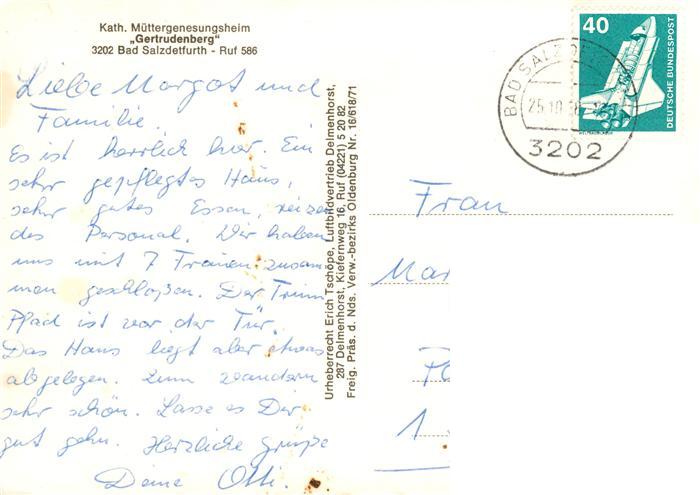 Kath. Müttergenesungsheim
„Gertrudenberg"
3202 Bad Salzdetfurth - Ruf 586
Liebe Margot und
Familie
Es ist herrlich hier. Ein
sehr gepflegtes Haus,
sehr gutes Essen, reizen
des Personal. Wir haben
uns mit 7 Frauen zusam
men geschloßen. Der Trimm
Pfad ist vor der Tür.
Das Haus liegt aber etwas
abgelegen. Zum wandern
sehr schön. Lasse es Dir
gut gehn. Herzliche Grüße
Deine Otti.
Urheberrecht Erich Tschöpe, Luftbildvertrieb Delmenhorst,
287 Delmenhorst, Kiefernweg 16, Ruf (04221) 5 20 82
Freig. Präs. d. Nds. Verw.-bezirks Oldenburg Nr. 16/618/71
40
DEUTSCHE BUNDESPOST
BAD SALZD
25.10
3202
Frau
Mar
1